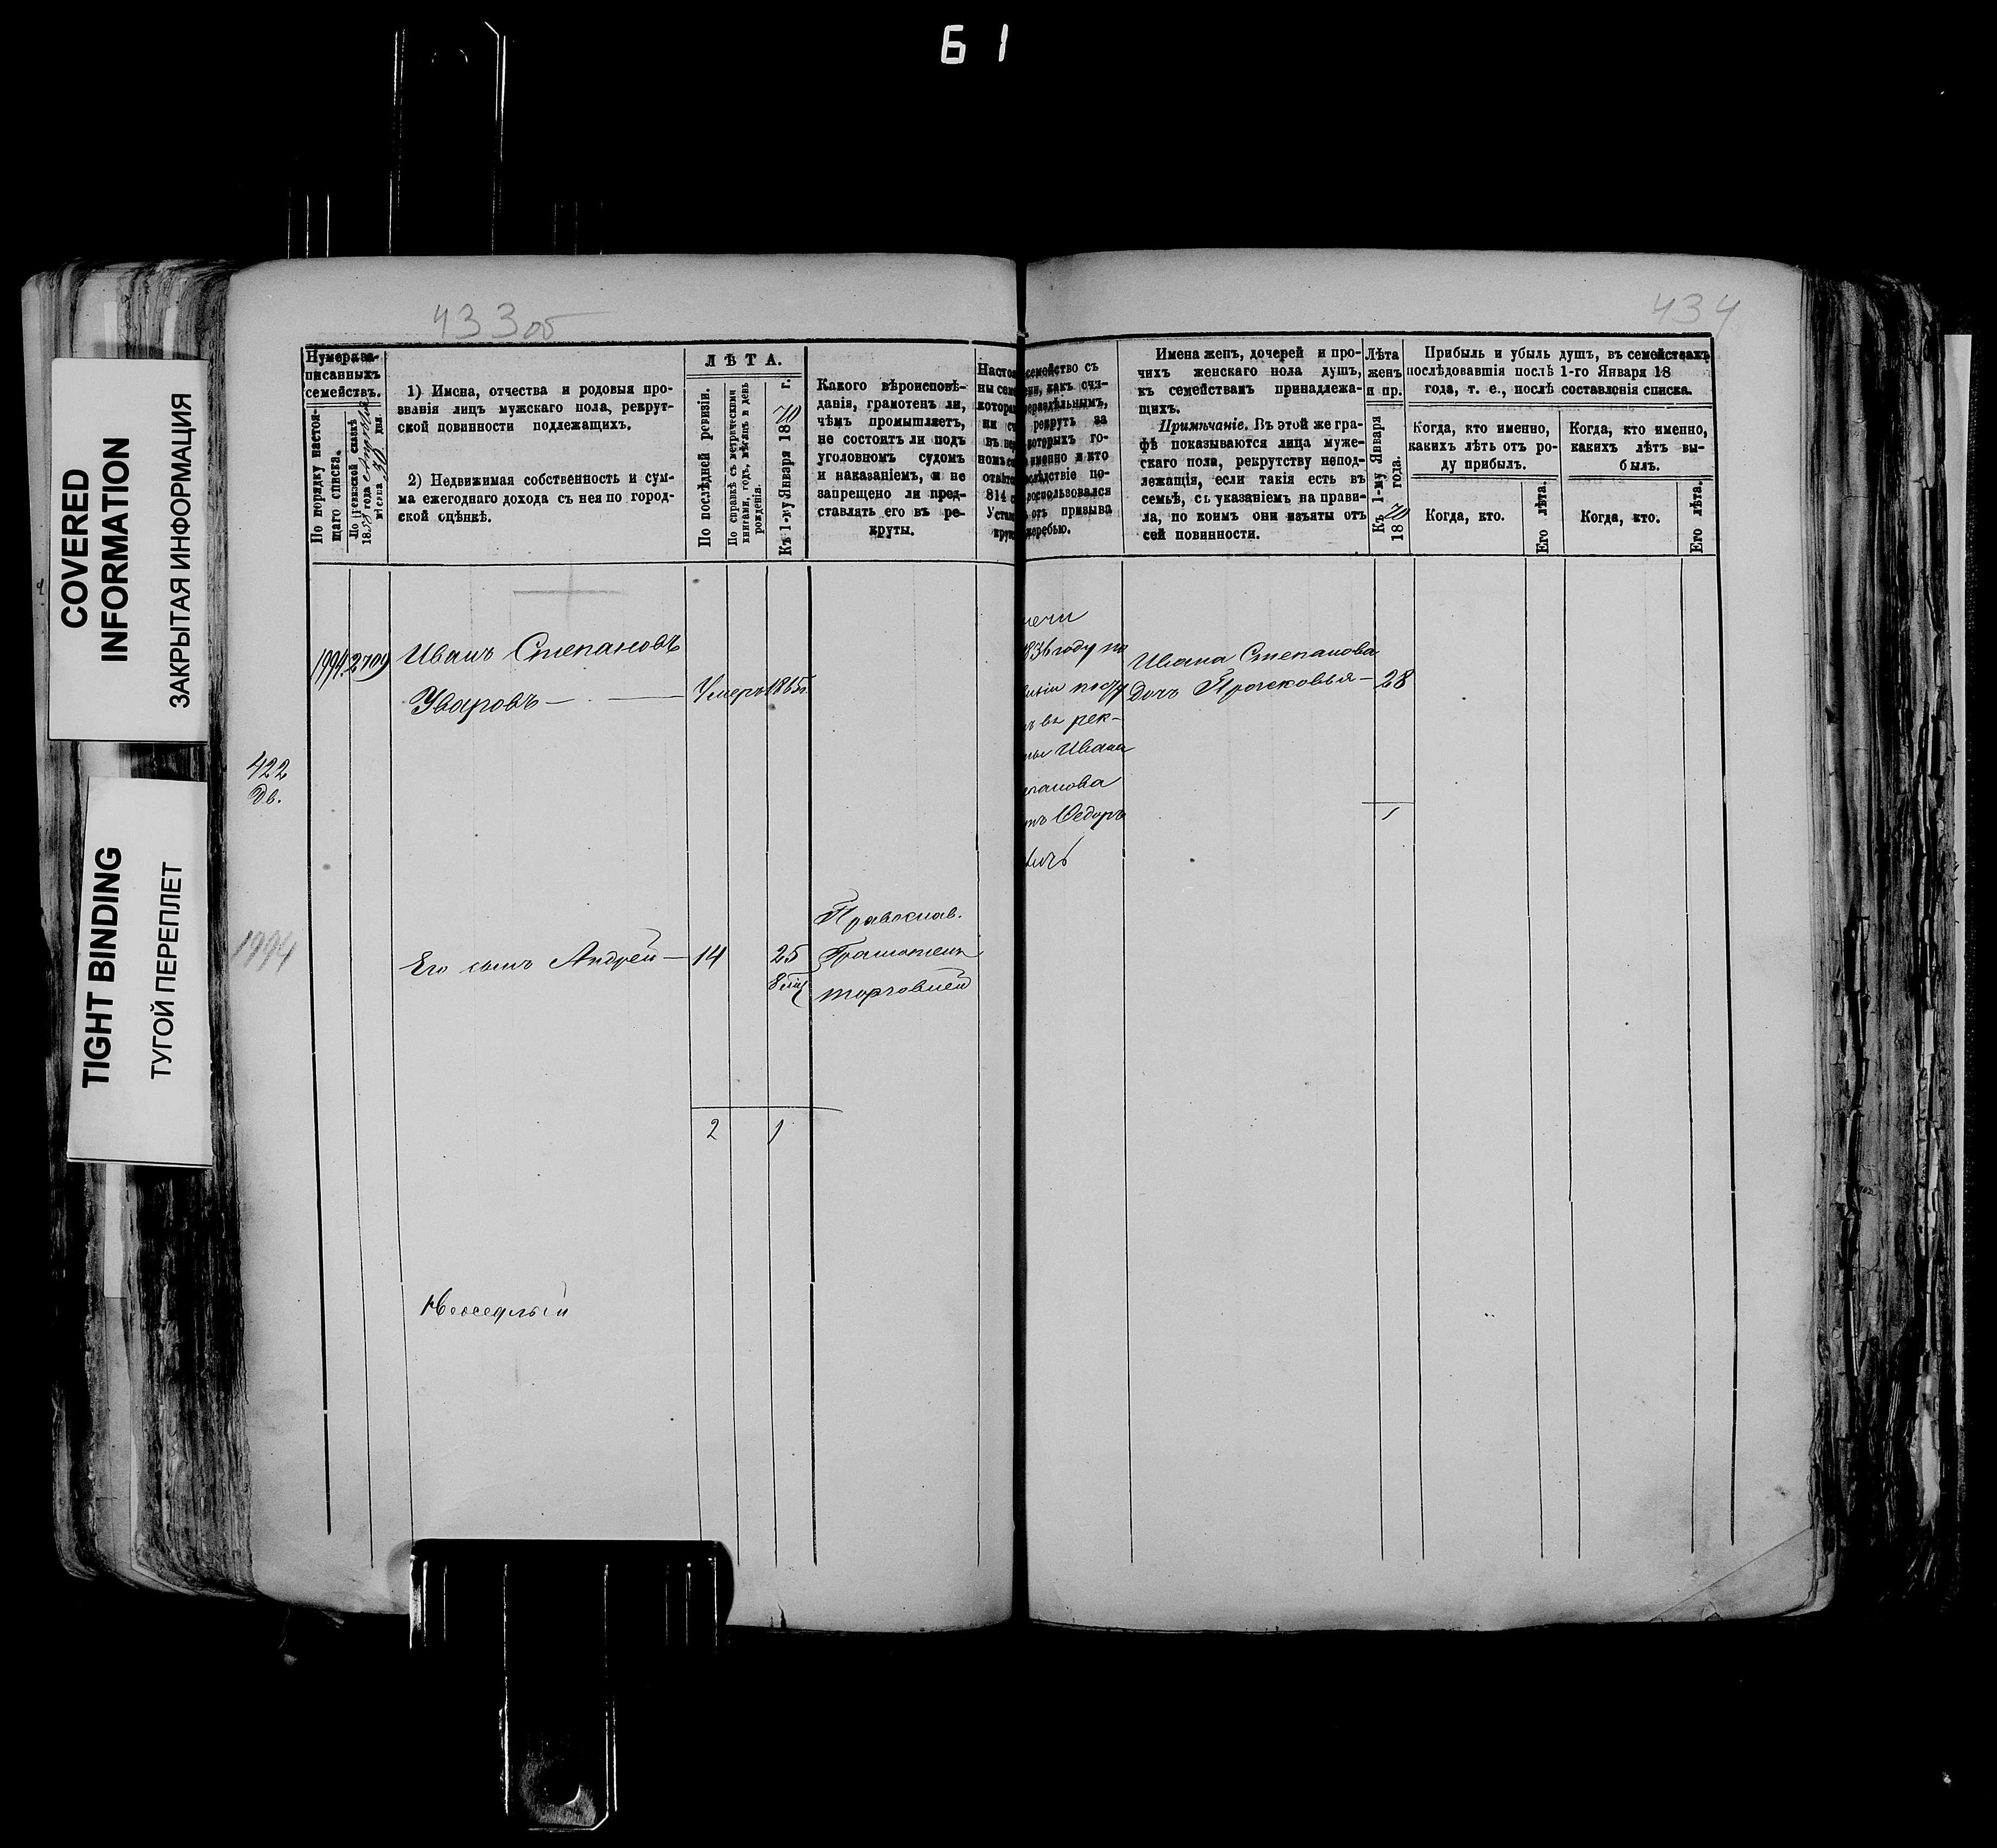 Б 1
COVERED
INFORMATION
ЗАКРЫТАЯ ИНФОРМАЦИЯ
TIGHT BINDING
ТУГОЙ ПЕРЕПЛЕТ
433об
434
Нумера за-
писанныхъ
семействъ.
По порядку настоя-
щаго списка.
По ревизской сказкѣ
18 года
мѣсяца дня.
1) Имена, отчества и родовыя про-
званія лицъ мужскаго пола, рекрут-
ской повинности подлежащихъ.
2) Недвижимая собственность и сум-
ма ежегоднаго дохода съ нея по город-
ской оцѣнкѣ.
ЛѢТА.
По послѣдней ревизіи.
По справкѣ съ метрическими
книгами, годъ, мѣсяцъ и день
рожденія.
Къ 1-му Января 1870 г.
Какого вѣроисповѣ-
данія, грамотенъ ли,
чѣмъ промышляетъ,
не состоитъ ли подъ
уголовномъ судомъ
и наказаніемъ, и не
запрещено ли пред-
ставлять его въ ре-
круты.
семейство съ
рекрутъ за
которыхъ го-
именно и кто
по-
воспользовался
отъ призыва
жеребью.
Имена женъ, дочерей и про-
чихъ женскаго пола душъ,
къ семействамъ принадлежа-
щихъ.
Примѣчаніе. Въ этой же гра-
фѣ показываются лица муже-
скаго пола, рекрутству непод-
лежащія, если такія есть въ
семьѣ, съ указаніемъ на прави-
ла, по коимъ они изъяты отъ
сей повинности.
Лѣта
женъ
и пр.
Къ 1-му Января
1870 года.
Прибыль и убыль душъ, въ семействахъ
послѣдовавшія послѣ 1-го Января 18
года, т. е., послѣ составленія списка.
Когда, кто именно,
какихъ лѣтъ отъ ро-
ду прибылъ.
Когда, кто именно,
какихъ лѣтъ вы-
былъ.
Когда, кто.
Его лѣта.
Когда, кто.
Его лѣта.
1994. 2709
Иванъ Степановъ
Уваровъ — Умеръ 1865г.
422
Дв.
1994
Его сынъ Андрей — 14 25
8 мѣс
Православ.
Грамотенъ
торговлей
2 1
Неоседлый
1836 году по
въ рек-
Ивана
Федоръ
Ивана Степанова
Дочь Просковья — 28
1